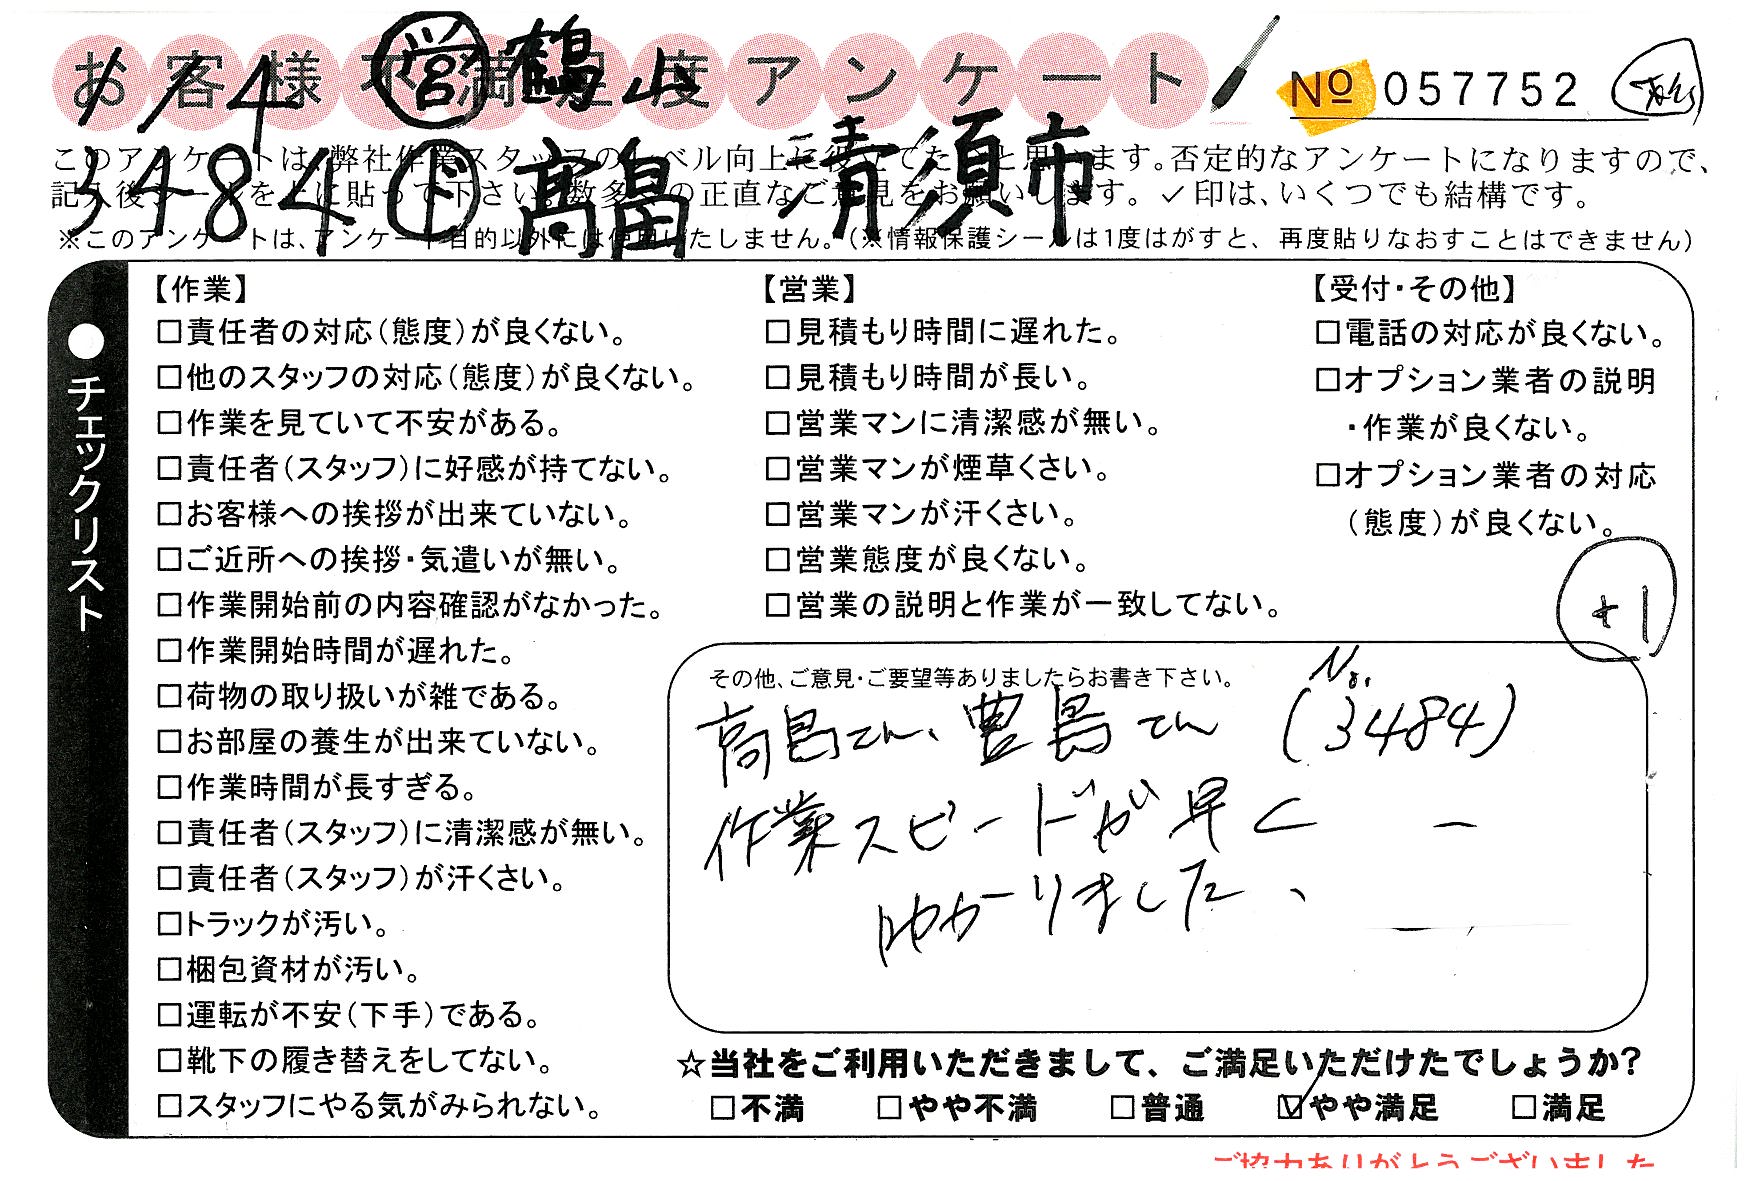 お客様不満足度アンケート
No 057752
1/4 営 鶴山
3484 ド 高畠 清須市
このアンケートは、弊社作業スタッフのレベル向上に役立てたいと思います。否定的なアンケートになりますので、
記入後シールを上に貼って下さい。数多くの正直なご意見をお願いします。✓印は、いくつでも結構です。
※このアンケートは、アンケート目的以外には使用いたしません。(※情報保護シールは1度はがすと、再度貼りなおすことはできません)
●チェックリスト
【作業】
□責任者の対応(態度)が良くない。
□他のスタッフの対応(態度)が良くない。
□作業を見ていて不安がある。
□責任者(スタッフ)に好感が持てない。
□お客様への挨拶が出来ていない。
□ご近所への挨拶・気遣いが無い。
□作業開始前の内容確認がなかった。
□作業開始時間が遅れた。
□荷物の取り扱いが雑である。
□お部屋の養生が出来ていない。
□作業時間が長すぎる。
□責任者(スタッフ)に清潔感が無い。
□責任者(スタッフ)が汗くさい。
□トラックが汚い。
□梱包資材が汚い。
□運転が不安(下手)である。
□靴下の履き替えをしてない。
□スタッフにやる気がみられない。
【営業】
□見積もり時間に遅れた。
□見積もり時間が長い。
□営業マンに清潔感が無い。
□営業マンが煙草くさい。
□営業マンが汗くさい。
□営業態度が良くない。
□営業の説明と作業が一致してない。
【受付・その他】
□電話の対応が良くない。
□オプション業者の説明
・作業が良くない。
□オプション業者の対応
(態度)が良くない。
+1
その他、ご意見・ご要望等ありましたらお書き下さい。
高島さん、豊島さん (No.3484)
作業スピードが早く
助かりました、
☆当社をご利用いただきまして、ご満足いただけたでしょうか?
□不満 □やや不満 □普通 ☑やや満足 □満足
ご協力ありがとうございました